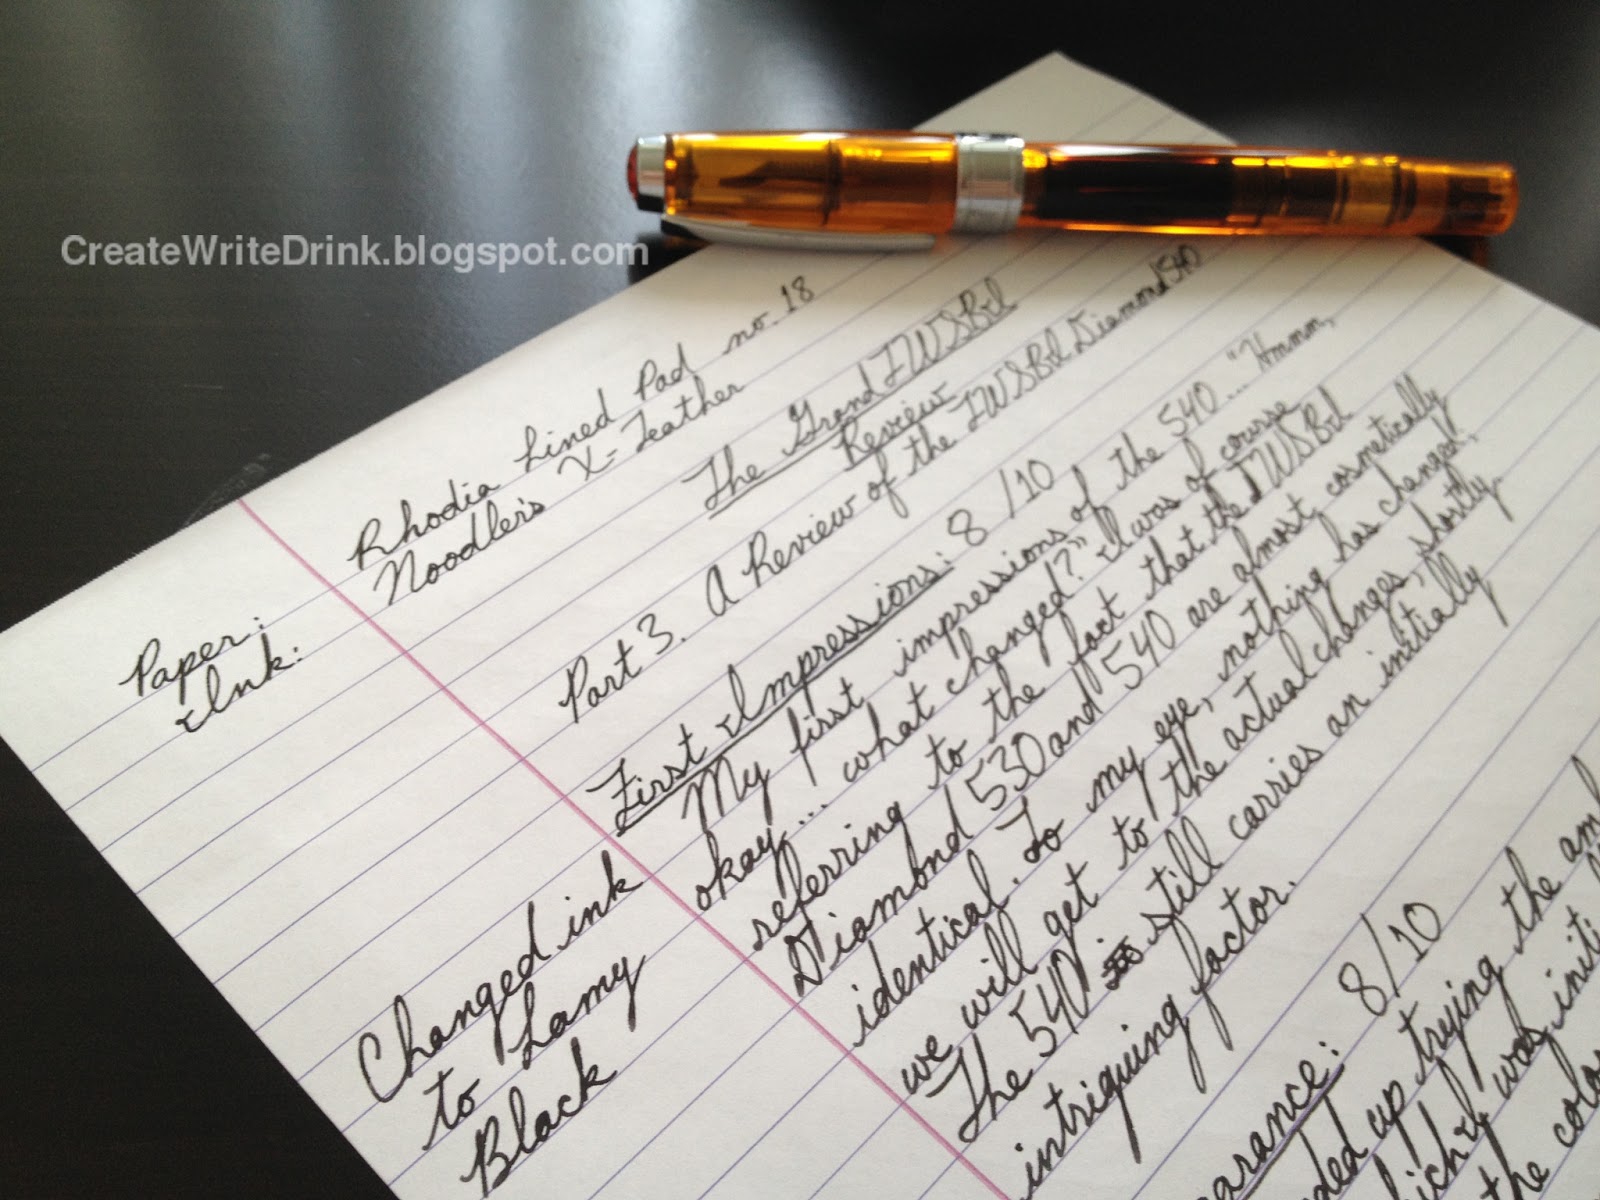 CreateWriteDrink.blogspot.com
Paper: Rhodia Lined Pad no. 18
Ink: Noodler's X-Feather
The Grand TWSBI
Review
Part 3. A Review of the TWSBI Diamond 540
First Impressions: 8/10
My first impressions of the 540... "Hmmm,
okay... what changed?" I was of course
referring to the fact that the TWSBI
Diamond 530 and 540 are almost cosmetically
identical. To my eye, nothing has changed,
we will get to the actual changes, shortly.
The 540 still carries an initially
intriguing factor.
Changed ink
to Lamy
Black
arance: 8/10
ded up trying the am
hich was initi
the colo